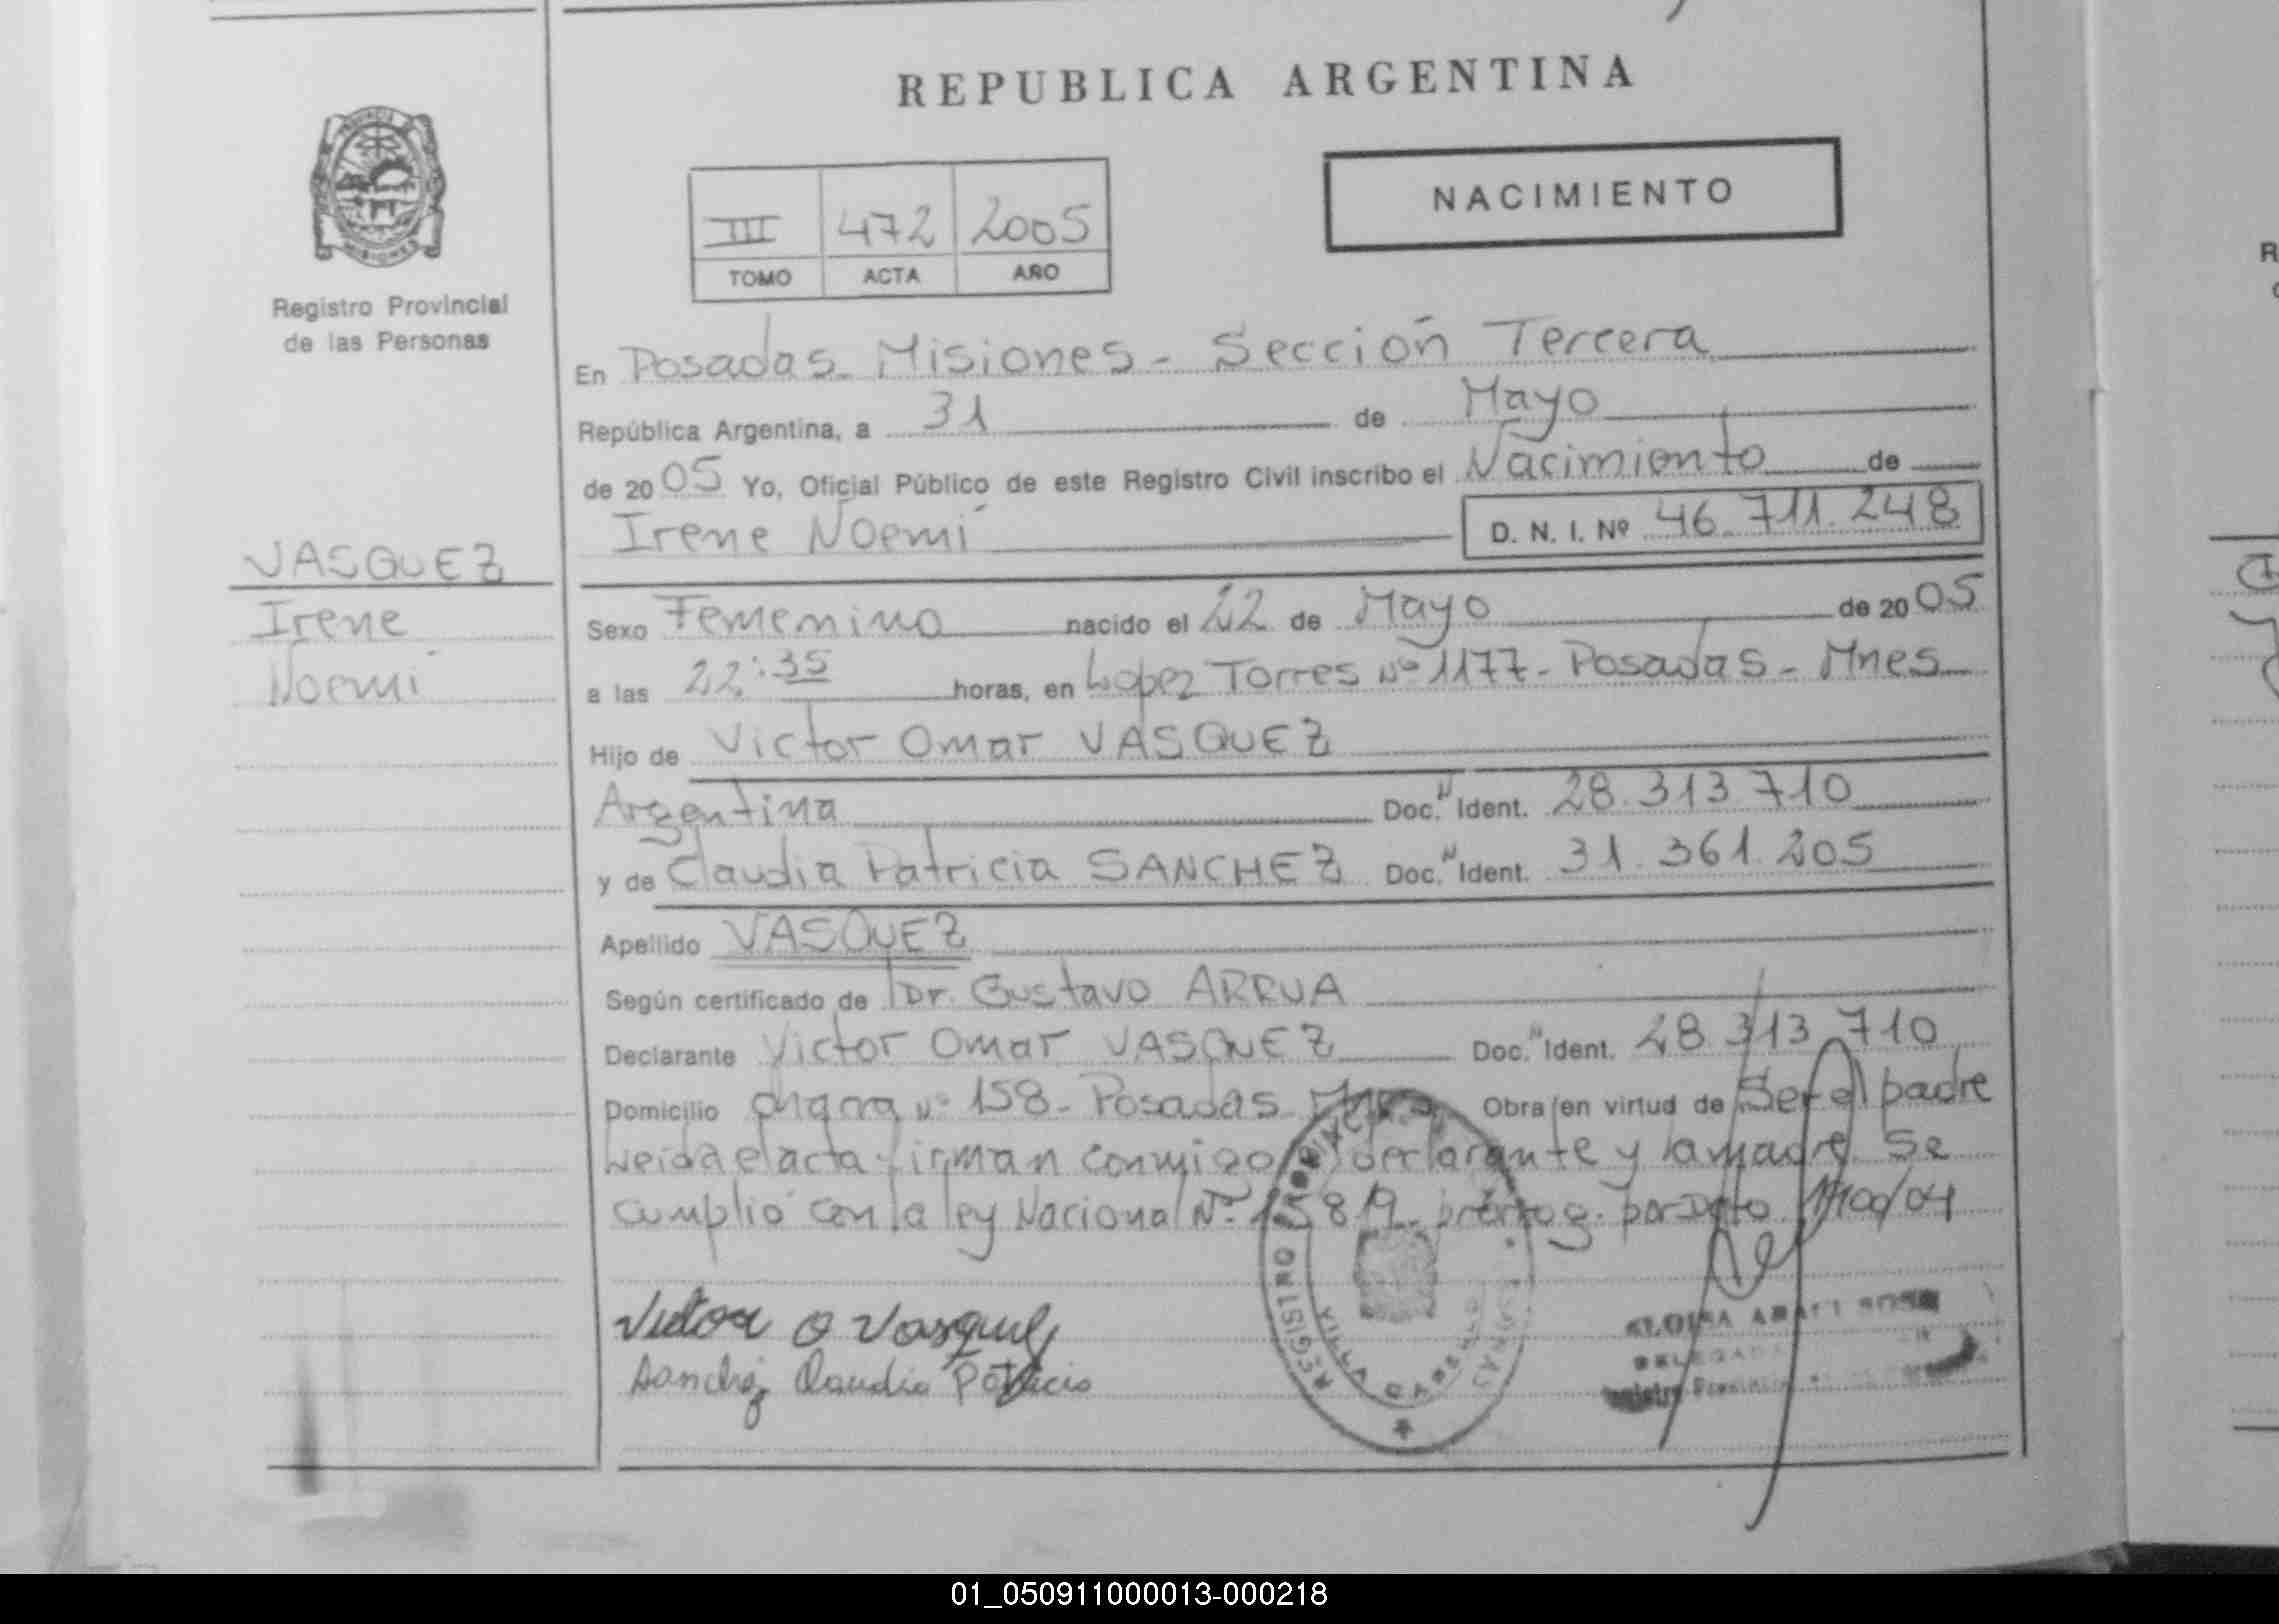 REPUBLICA ARGENTINA
PROVINCIA DE MISIONES
Registro Provincial
de las Personas
NACIMIENTO
III 472 2005
TOMO ACTA AÑO
En Posadas Misiones - Sección Tercera
República Argentina, a 31 de Mayo
de 2005 Yo, Oficial Público de este Registro Civil inscribo el Nacimiento de
Irene Noemí D. N. I. Nº 46.711.248
VASQUEZ
Irene
Noemí
Sexo Femenino nacido el 22 de Mayo de 2005
a las 22:35 horas, en Lopez Torres Nº 1177 - Posadas - Mnes
Hijo de Victor Omar VASQUEZ
Argentina Doc. N Ident. 28.313.710
y de Claudia Patricia SANCHEZ Doc. N Ident. 31.361.205
Apellido VASQUEZ
Según certificado de Dr. Gustavo ARRUA
Declarante Victor Omar VASQUEZ Doc. N Ident. 28.313.710
Domicilio chacra Nº 158 - Posadas Mnes Obra en virtud de Ser el padre
Leida el acta firman conmigo el declarante y la madre. Se
cumplió con la ley Nacional Nº 15819 prorrog. por Dcto 1100/04
Victor O Vasquez
Sanchez Claudia Patricia
REGISTRO PROVINCIAL
VILLA CABELLO
DELEGADA
01_050911000013-000218